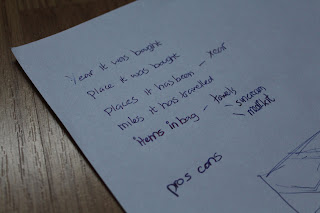 Year it was bought
Place it was bought
Places it has been – year
miles it has travelled
items in bag – travels
– suncream
– market
pros cons